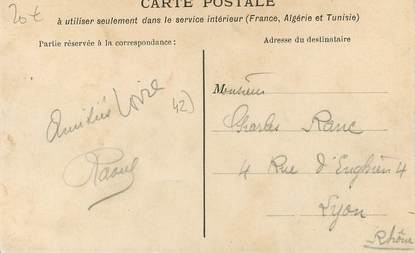 20€
CARTE POSTALE
à utiliser seulement dans le service intérieur (France, Algérie et Tunisie)
Partie réservée à la correspondance :
Adresse du destinataire
Amitiés
Loire
42)
Raoul
Monsieur
Charles Ranc
4 Rue d'Enghien 4
Lyon
Rhône